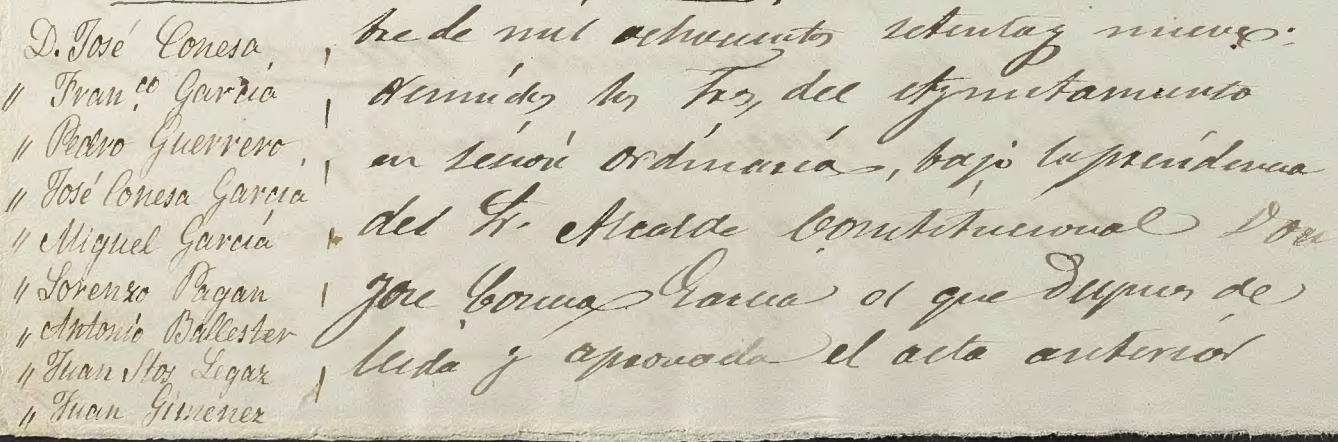 D. José Conesa
" Fran.co García
" Pedro Guerrero
" José Conesa García
" Miguel García
" Lorenzo Pagan
" Antonio Ballester
" Juan Stos Legaz
" Juan Gimenez
bre de mil ochocientos setenta y nueve:
reunidos los Sres, del Ayuntamiento
en sesion ordinaria, bajo la presidencia
del Sr. Alcalde Constitucional Don
Jose Conesa Garcia el que despues de
leida y aprovada el acta anterior